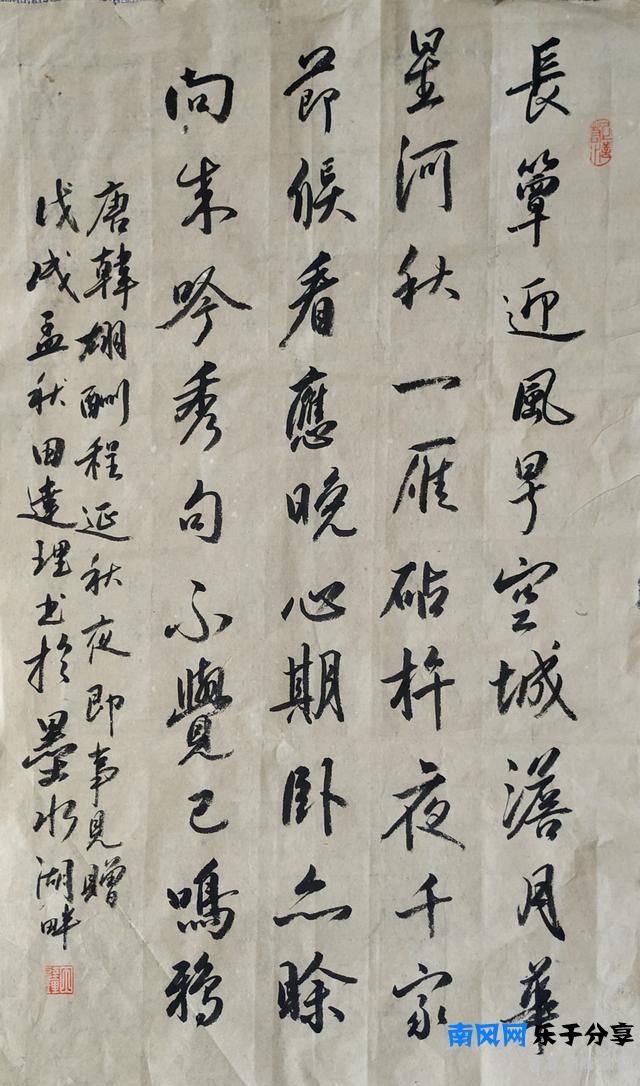 長簟迎風早空城澹月華
星河秋一雁砧杵夜千家
節候看應晚心期卧亦賒
向來吟秀句不覺已鳴鴉
唐韓翃酬程延秋夜即事見贈
戊戌孟秋田達理书於墨水湖畔
南风网 乐子分享